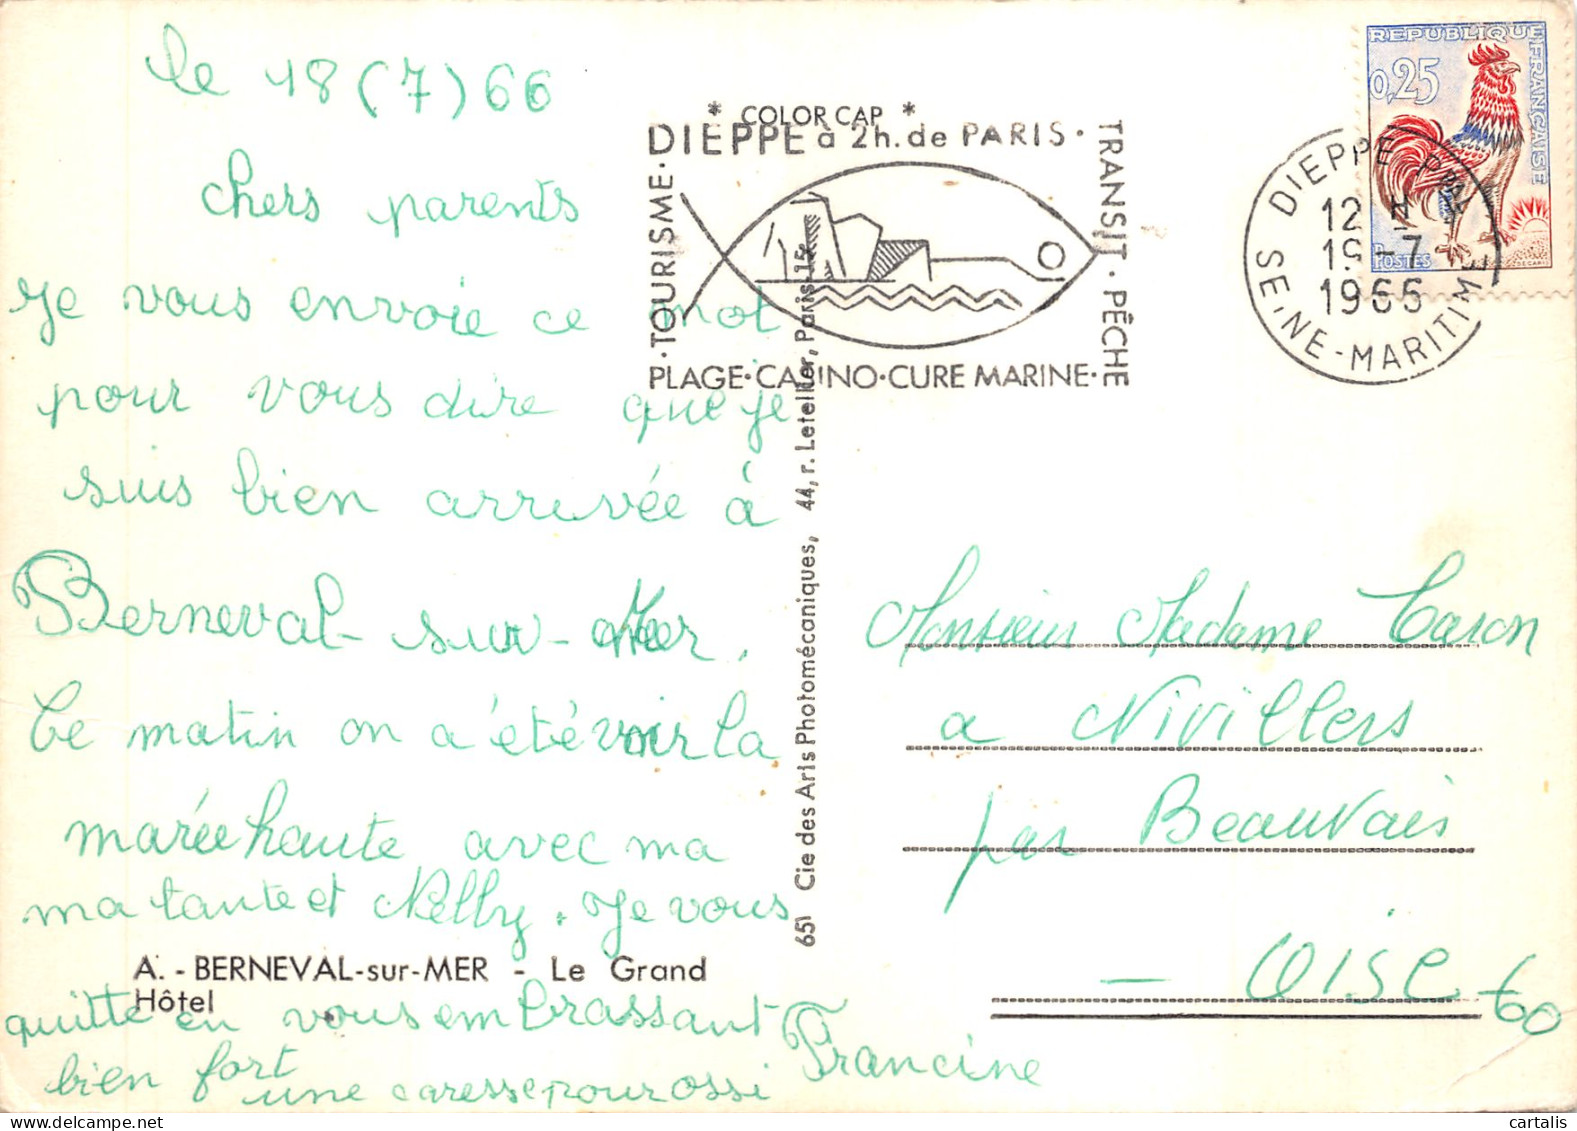 le 18 (7) 66
chers parents
Je vous envoie ce mot
pour vous dire que je
suis bien arrivée à
Berneval-sur-Mer.
Ce matin on a été voir la
marée haute avec ma
ma tante et Nelly. Je vous
A. - BERNEVAL-sur-MER - Le Grand
Hôtel
quitte en vous embrassant
bien fort
une caresse pour ossi
Francine
* COLOR CAP *
DIEPPE à 2h. de PARIS ·
TRANSIT · PÊCHE
· TOURISME ·
PLAGE · CASINO · CURE MARINE ·
651 Cie des Arts Photomécaniques, 44, r. Letellier, Paris-15
REPUBLIQUE FRANÇAISE
0,25
POSTES
DIEPPE Pal
12 H
19 - 7
1966
SEINE-MARITIME
Monsieur Madame Caron
a Nivillers
par Beauvais
- Oise - 60
cartalis